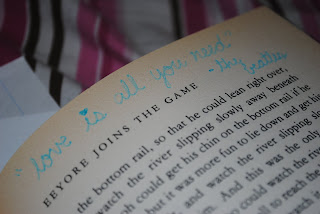 "love is all you need"
- thy beatles
EEYORE JOINS THE GAME
the bottom rail, so that he could lean right over,
watch the river slipping slowly away beneath
oh could get his chin on the bottom rail if he
but it was more fun to lie down and get his
and watch the river slipping slow
on. And this was the only
could watch the river
to reach the